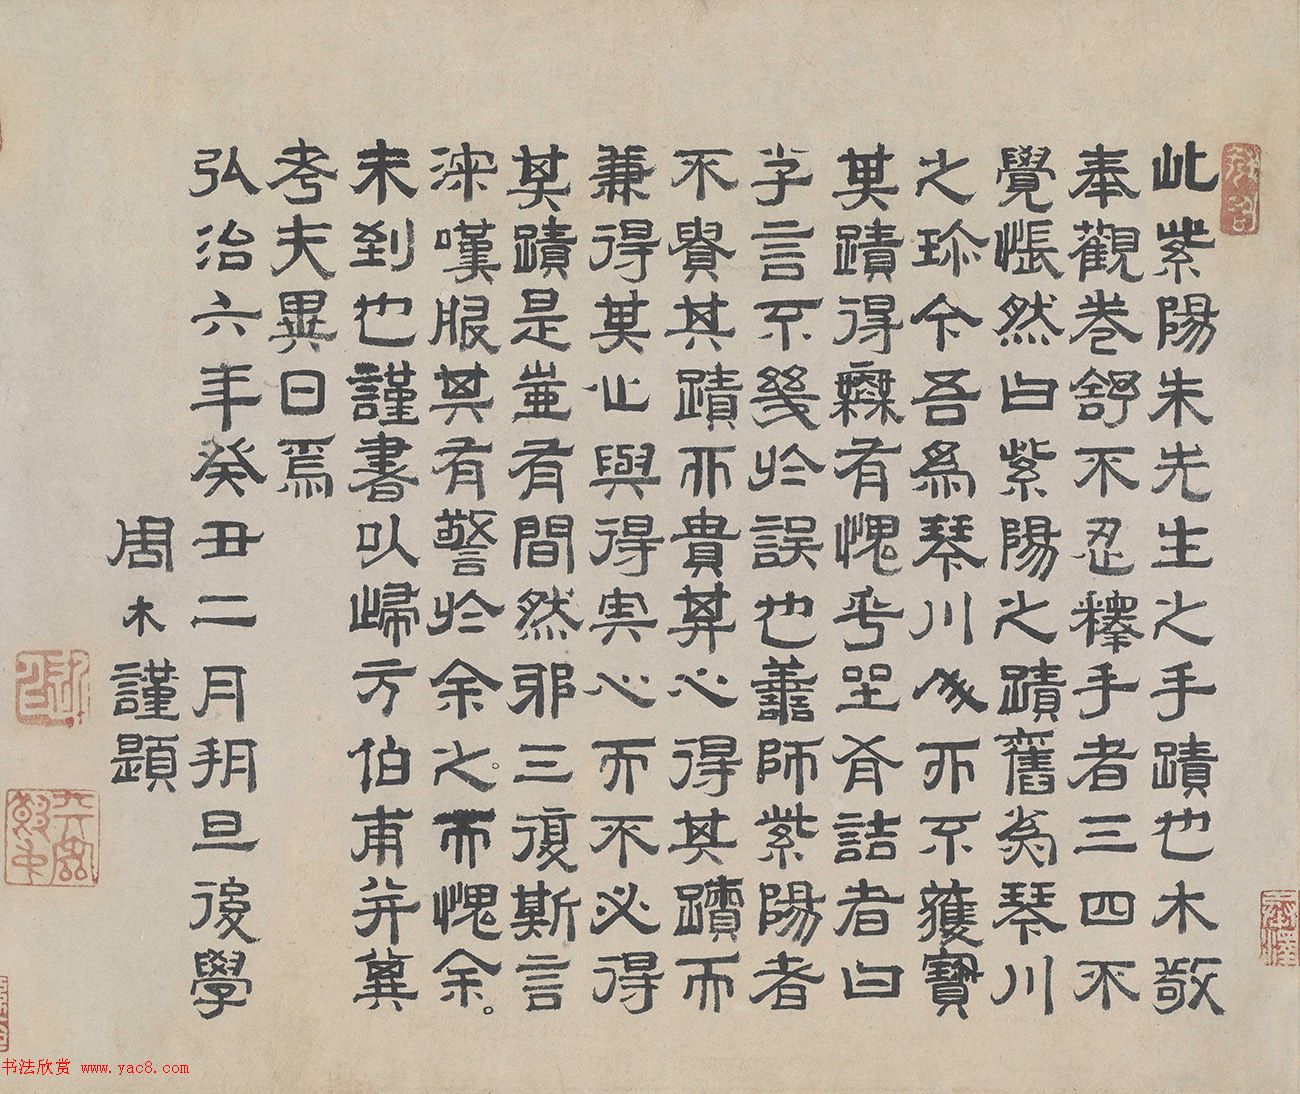 此紫陽朱先生之手蹟也木敬
奉觀卷舒不忍釋手者三四不
覺悵然曰紫陽之蹟舊為琴川
之珎今吾為琴川人而不獲寶
其蹟得無有愧乎坐有詰者曰
子言不幾於誤也善師紫陽者
不貴其蹟而貴其心得其蹟而
兼得其心與得其心而不必得
其蹟是豈有間然邪三復斯言
深嘆服其有警於余之而愧余
未到也謹書以歸方伯甫并冀
考夫異日焉
弘治六年癸丑二月朔旦後學
周木謹題
书法欣赏 www.yac8.com